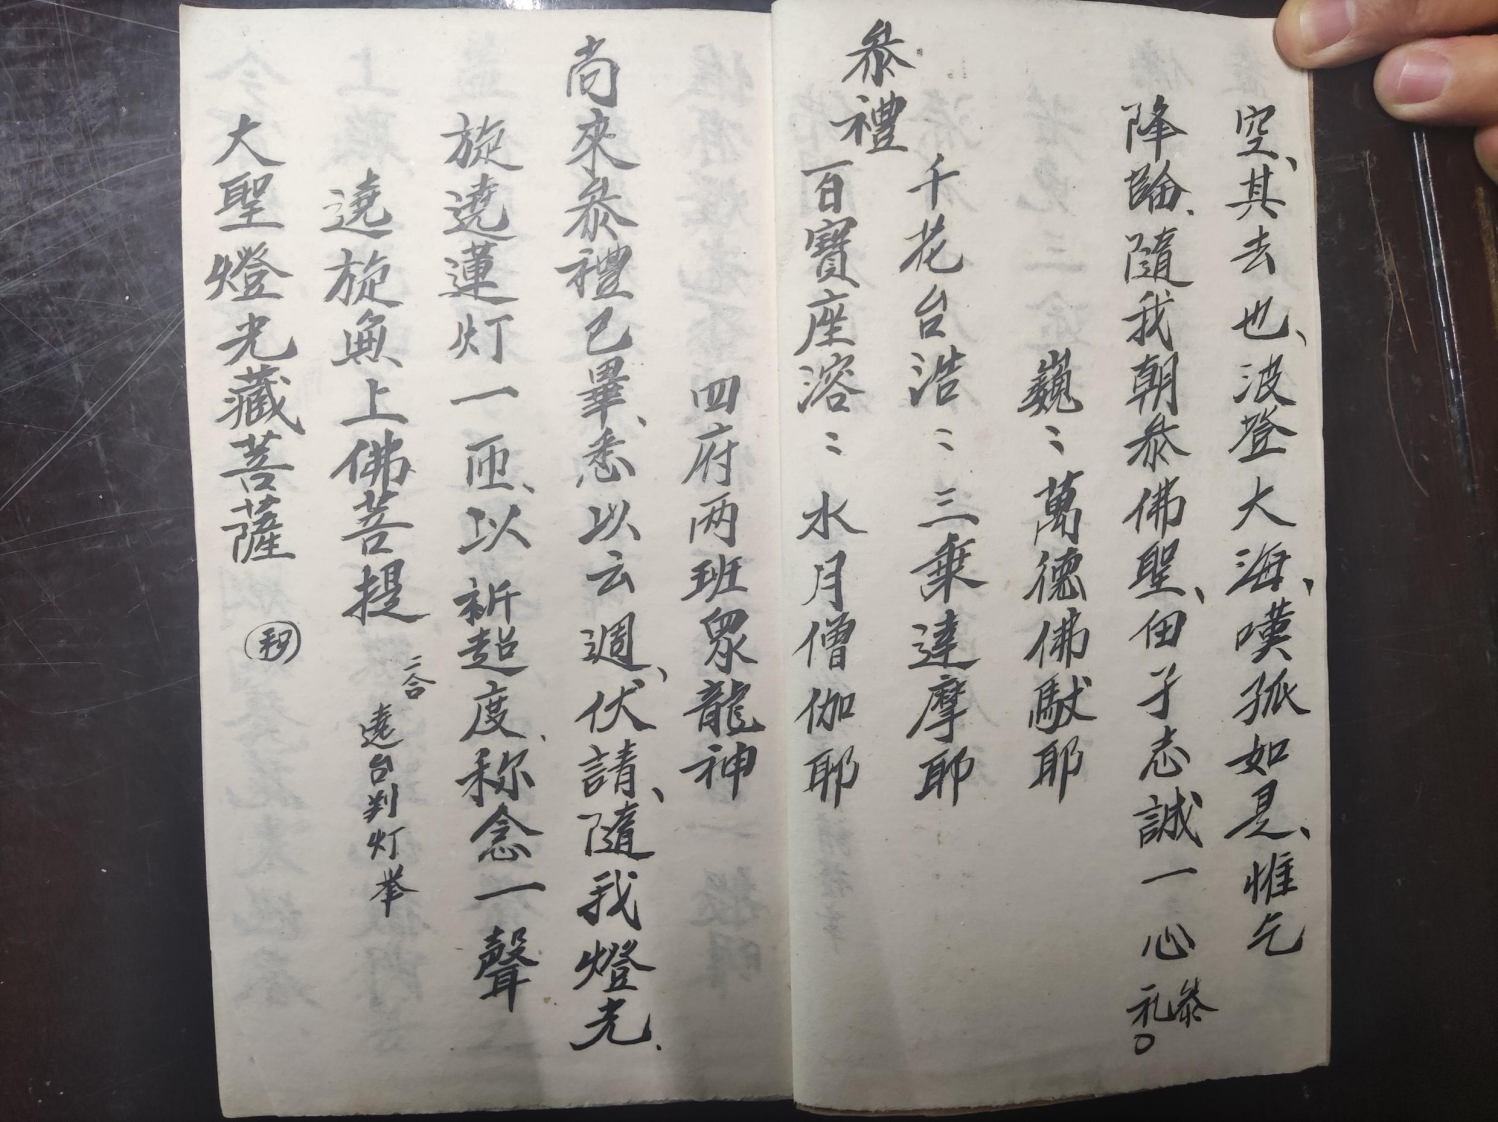 空、其去也、波登大海、嘆孤如是、惟乞
降臨、隨我朝叅佛聖、田子志誠一心叅礼○
巍〻萬德佛馱耶
千花台浩〻三乗達摩耶
叅禮
百寶座溶〻水月僧伽耶
四府两班眾龍神
尚來叅禮已畢、悉以云週、伏請、隨我燈光、
旋遶蓮灯一匝、以祈超度、称念一聲
遶旋無上佛菩提 二合 遶台判灯举
大聖燈光藏菩薩